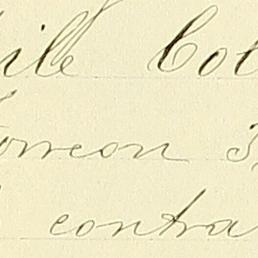 ille Col
orreon 3
contra